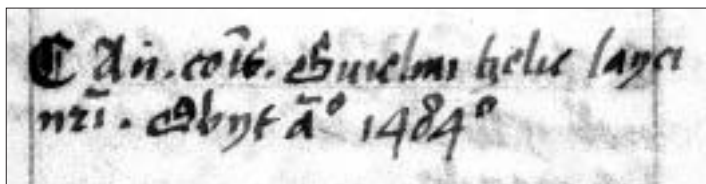 ¶ An̄. cōis. Guielmi helie layci
nr̄i. Obyt āº 1484º